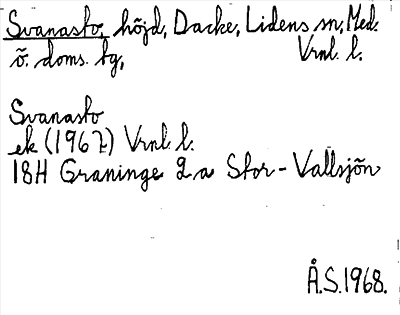 Svanasto, höjd, Dacke, Lidens sn, Med.
ö. doms. tg, Vrnl. l.
Svanasto
ek (1967) Vrnl. l.
18H Graninge 2 a Stor-Vallsjön
Å.S. 1968.